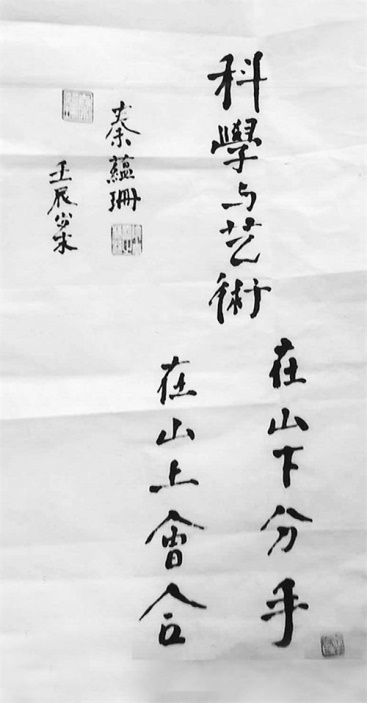 科學与艺術
在山下分手
在山上會合
秦蘊珊
壬辰